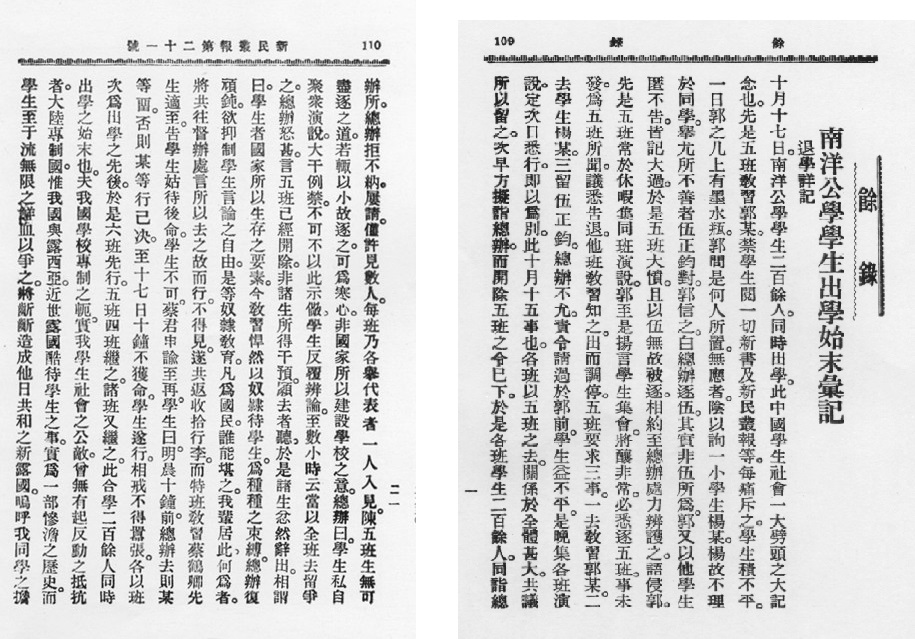 109 餘 錄
餘錄
南洋公學學生出學始末彙記
退學詳記
十月十七日。南洋公學學生二百餘人。同時出學。此中國學生社會一大劈頭之大記
念也。先是五班敎習郭某。禁學生閱一切新書及新民叢報等。每痛斥之。學生積不平。
一日郭之几上有墨水瓶。郭問是何人所置。無應者。陰以詢一小學生楊某。楊故不理
於同學。舉尤所不善者伍正鈞對。郭信之。白總辦逐伍。其實非伍所爲。郭又以他學生
匿不告。皆記大過。於是五班大憤。且以伍無故被逐。相約至總辦處力辨護之。語侵郭。
先是五班常於休暇集同班演說。郭至是揚言學生集會。將釀非常。必悉逐五班。事未
發。爲五班所聞。議悉告退。他班敎習知之。出而調停。五班要求三事。一去敎習郭某。二
去學生楊某。三留伍正鈞。總辦不允。責令請過於郭前。學生益不平。是晚集各班演
說。定次日悉行。即以爲別。此十月十五事也。各班以五班之去。關係於全體甚大。共議
所以留之。次早方擬詣總辦。而開除五班之令已下。於是各班學生二百餘人。同詣總
一
新民叢報第二十一號 110
辦所。總辦拒不納。屢請。僅許見數人。每班乃各舉代表者一人入見。陳五班生無可
盡逐之道。若輒以小故逐之。可爲寒心。非國家所以建設學校之意。總辦曰。學生私自
聚衆演說。大干例禁。不可不以此示儆。學生反覆辨論。至數小時。云當以全班去留爭
之。總辦怒甚。言五班已經開除。非諸生所得干預。願去者聽。於是諸生忿然辭出。相謂
曰。學生者國家所以生存之要素。今敎習悍然以奴隸待學生。爲種種之束縛。總辦復
頑鈍。欲抑制學生言論之自由。是等奴隸敎育。凡爲國民。誰能堪之。我輩居此。何爲者。
將共往督辦處。言所以去之故而行。不得見。遂共返收拾行李。而特班敎習蔡鶴卿先
生適至。告學生姑待後命。學生不可。蔡君申諭至再。學生曰。明晨十鐘前。總辦去則某
等留。否則某等行已決。至十七日十鐘不獲命。學生遂行。相戒不得囂張。各以班
次爲出學之先後。於是六班先行。五班四班繼之。諸班又繼之。此合學二百餘人同時
出學之始末也。夫我國學校專制之軛。實我學生社會之公敵。曾無有起反動之抵抗
者。大陸專制國。惟我國與露西亞。近世露國酷待學生之事。實爲一部慘澹之歷史。而
學生至于流無限之鮮血以爭之。將斷斷造成他日共和之新露國。嗚呼。我同學之擔
二